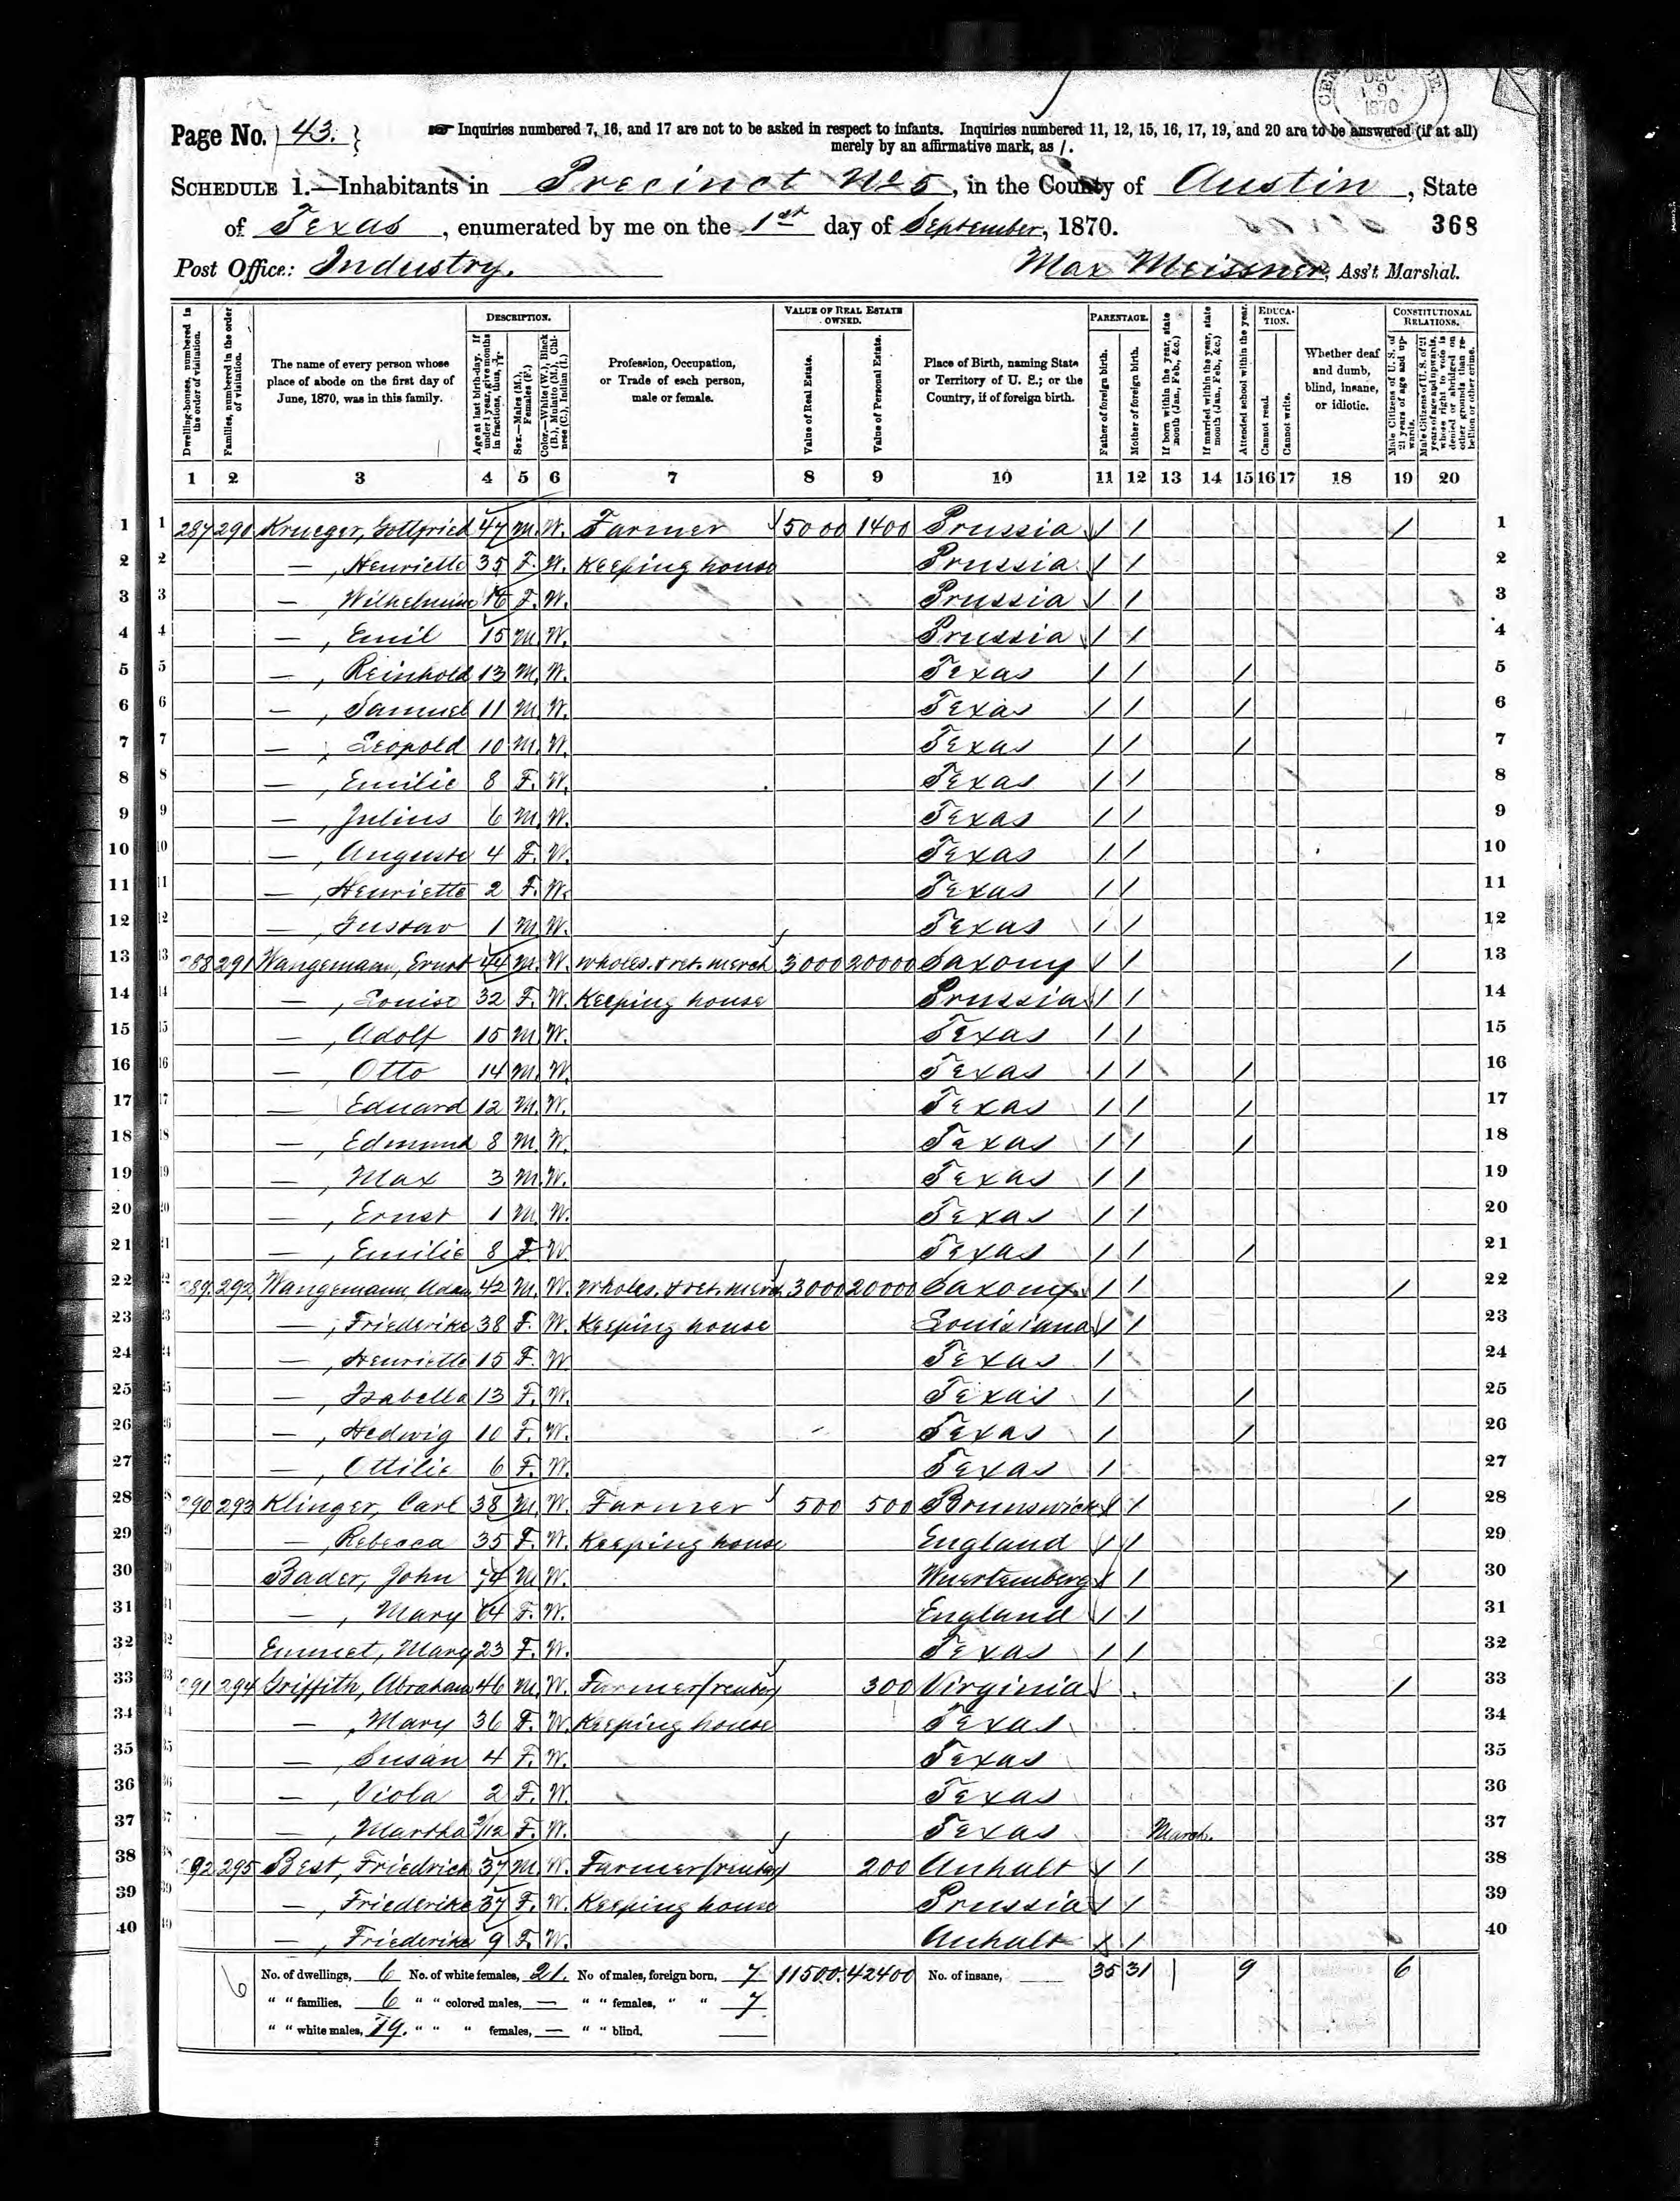 CEN
DEC 9 1870
Page No. 43.
Inquiries numbered 7, 16, and 17 are not to be asked in respect to infants. Inquiries numbered 11, 12, 15, 16, 17, 19, and 20 are to be answered (if at all)
merely by an affirmative mark, as /.
SCHEDULE 1.—Inhabitants in Precinct No 5, in the County of Austin, State
of Texas, enumerated by me on the 1st day of September, 1870. 368
Post Office: Industry. Max Meissner, Ass't Marshal.
Dwelling-houses, numbered in the order of visitation.
Families, numbered in the order of visitation.
The name of every person whose place of abode on the first day of June, 1870, was in this family.
DESCRIPTION.
Age at last birth-day. If under 1 year, give months in fractions, thus, 3/12.
Sex.—Males (M.), Females (F.)
Color.—White (W.), Black (B.), Mulatto (M.), Chinese (C.), Indian (I.)
Profession, Occupation, or Trade of each person, male or female.
VALUE OF REAL ESTATE OWNED.
Value of Real Estate.
Value of Personal Estate.
Place of Birth, naming State or Territory of U. S.; or the Country, if of foreign birth.
PARENTAGE.
Father of foreign birth.
Mother of foreign birth.
If born within the year, state month (Jan., Feb., &c.)
If married within the year, state month (Jan., Feb., &c.)
Attended school within the year.
EDUCATION.
Cannot read.
Cannot write.
Whether deaf and dumb, blind, insane, or idiotic.
CONSTITUTIONAL RELATIONS.
Male Citizens of U. S. of 21 years of age and upwards.
Male Citizens of U. S. of 21 years of age and upwards, whose right to vote is denied or abridged on other grounds than rebellion or other crime.
1 2 3 4 5 6 7 8 9 10 11 12 13 14 15 16 17 18 19 20
1 287 290 Krueger, Gottfried 47 M. W. Farmer 5000 1400 Prussia / / / 1
2 —, Henriette 35 F. W. Keeping house Prussia / / 2
3 — Wilhelmine 16 F. W. Prussia / / 3
4 —, Emil 15 M. W. Prussia / / 4
5 —, Reinhold 13 M. W. Texas / / / 5
6 —, Samuel 11 M. W. Texas / / / 6
7 —, Leopold 10 M. W. Texas / / / 7
8 —, Emilie 8 F. W. Texas / / 8
9 —, Julius 6 M. W. Texas / / 9
10 —, Auguste 4 F. W. Texas / / 10
11 —, Henriette 2 F. W. Texas / / 11
12 —, Gustav 1 M. W. Texas / / 12
13 288 291 Wangemann, Ernst 44 M. W. wholes. & ret. merch 3000 20000 Saxony / / / 13
14 —, Louise 32 F. W. Keeping house Prussia / / 14
15 —, Adolf 15 M. W. Texas / / 15
16 —, Otto 14 M. W. Texas / / / 16
17 —, Eduard 12 M. W. Texas / / / 17
18 —, Edmund 8 M. W. Texas / / / 18
19 —, Max 3 M. W. Texas / / 19
20 —, Ernst 1 M. W. Texas / / 20
21 —, Emilie 8 F. W. Texas / / / 21
22 289 292 Wangemann, Adam 42 M. W. Wholes. & ret. merch. 3000 20000 Saxony / / / 22
23 —, Friederike 38 F. W. Keeping house Louisiana / / 23
24 —, Henriette 15 F. W. Texas / 24
25 —, Isabella 13 F. W. Texas / / 25
26 —, Hedwig 10 F. W. Texas / / 26
27 —, Ottilie 6 F. W. Texas / 27
28 290 293 Klinger, Carl 38 M. W. Farmer 500 500 Brunswick / / / 28
29 —, Rebecca 35 F. W. Keeping house England / / 29
30 Bader, John 74 M. W. Wuertemberg / / / 30
31 —, Mary 64 F. W. England / / 31
32 Emmet, Mary 23 F. W. Texas / / 32
33 291 294 Griffith, Abraham 46 M. W. Farmer (renter) 300 Virginia / 33
34 —, Mary 36 F. W. Keeping house Texas 34
35 —, Susan 4 F. W. Texas 35
36 —, Viola 2 F. W. Texas 36
37 —, Martha 3/12 F. W. Texas March. 37
38 292 295 Best, Friedrich 37 M. W. Farmer (renter) 200 Anhalt / / 38
39 —, Friederike 37 F. W. Keeping house Prussia / / 39
40 —, Friederike 9 F. W. Anhalt / / 40
6 No. of dwellings, 6 No. of white females, 21. No of males, foreign born, 7 11500. 42400 No. of insane, 35 31 9 6
" " families, 6 " " colored males, — " " females, " " 7
" " white males, 19. " " " females, — " " blind,